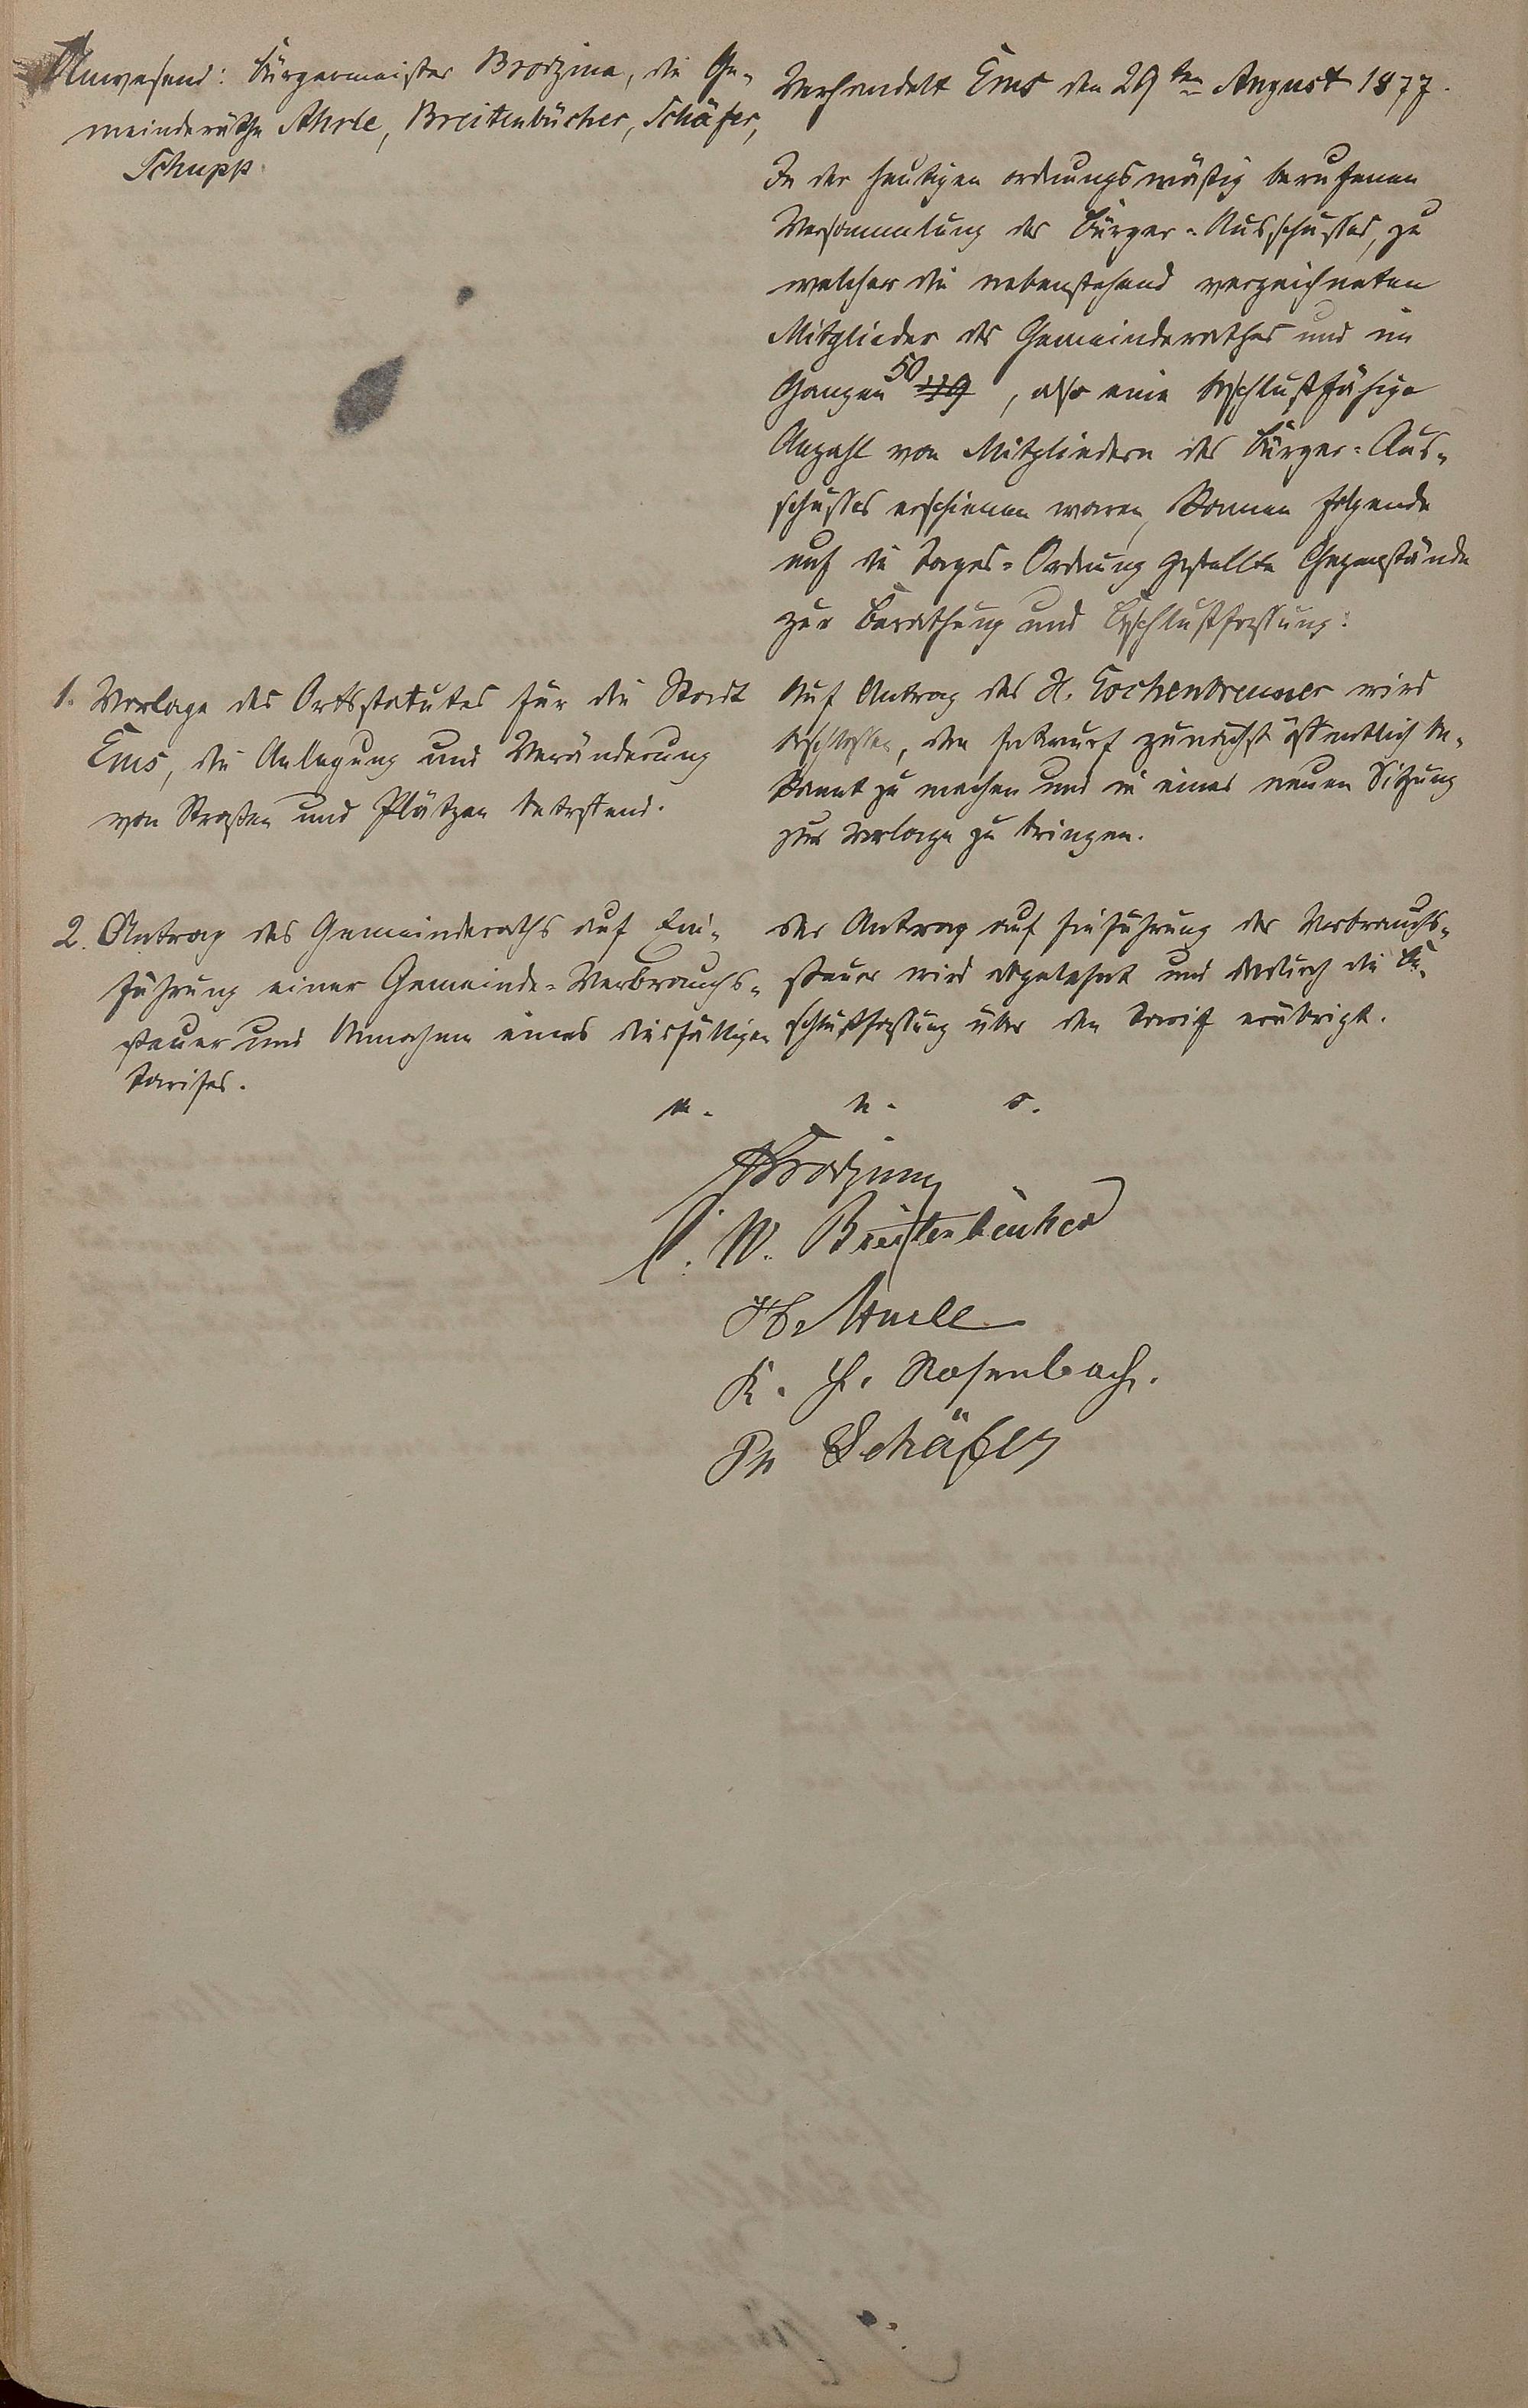 Anwesend: Bürgermeister Brodzina, die Ge-
meinderäthe Ahrle, Breitenbücher, Schäfer,
Schupp
Verhandelt Ems den 29ten August 1877.
In der heutigen ordnungsmäßig berufenen
Versammlung des Bürger-Ausschusses, zu
welcher die nebenstehend verzeichneten
Mitglieder des Gemeinderathes und im
Ganzen 50, also eine beschlußfähige
Anzahl von Mitgliedern des Bürger-Aus-
schusses erschienen waren, kamen folgende
auf die Tages-Ordnung gestellte Gegenstände
zur Berathung und Beschlußfassung:
1. Vorlage des Ortsstatutes für die Stadt
Ems, die Anlegung und Veränderung
von Straßen und Plätzen betreffend.
Auf Antrag des H. Gochenbrenner wird
beschlossen, den Entwurf zunächst öffentlich be-
kannt zu machen und in einer neuen Sitzung
zur Vorlage zu bringen.
2. Antrag des Gemeinderaths auf Ein-
führung einer Gemeinde-Verbrauchs-
steuer und Annahme eines diesfälligen
Tarifes.
Der Antrag auf Einführung der Verbrauchs-
steuer wird abgelehnt und dadurch die Be-
schlußfassung über den Tarif erübrigt.
v. g. u.
Brodzina
C. W. Breitenbücher
H. Ahrle
K. H. Rosenbach.
Ph Schäfer